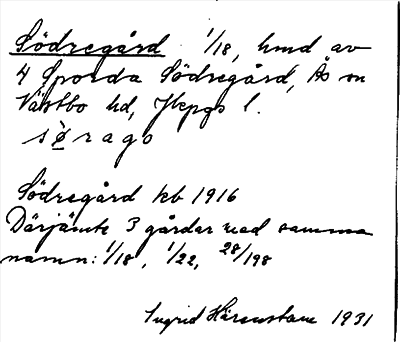 Södregård 1/18, hmd av
4 Sporda Södregård, Ås sn
Västbo hd, Jkpgs l.
sø̀rago
Södregård kb 1916
Därjämte 3 gårdar med samma
namn: 1/18, 1/22, 28/198
Ingrid Härenstam 1931